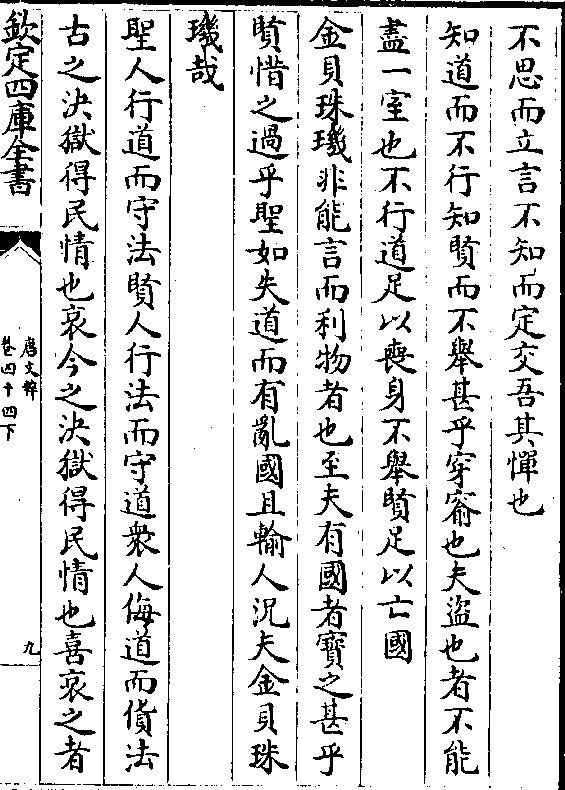 不思而立言不知而定交吾其憚也
知道而不行知賢而不舉甚乎穿窬也夫盜也者不能
盡一室也不行道足以喪身不舉賢足以亡國
金貝珠璣非能言而利物者也至夫有國者寳之甚乎
賢惜之過乎聖如失道而有亂國且輸人況夫金貝珠
璣哉
聖人行道而守法賢人行法而守道衆人侮道而貨法
古之決獄得民情也哀今之決獄得民情也喜哀之者
欽定四庫全書
唐文粹
卷四十四下
九